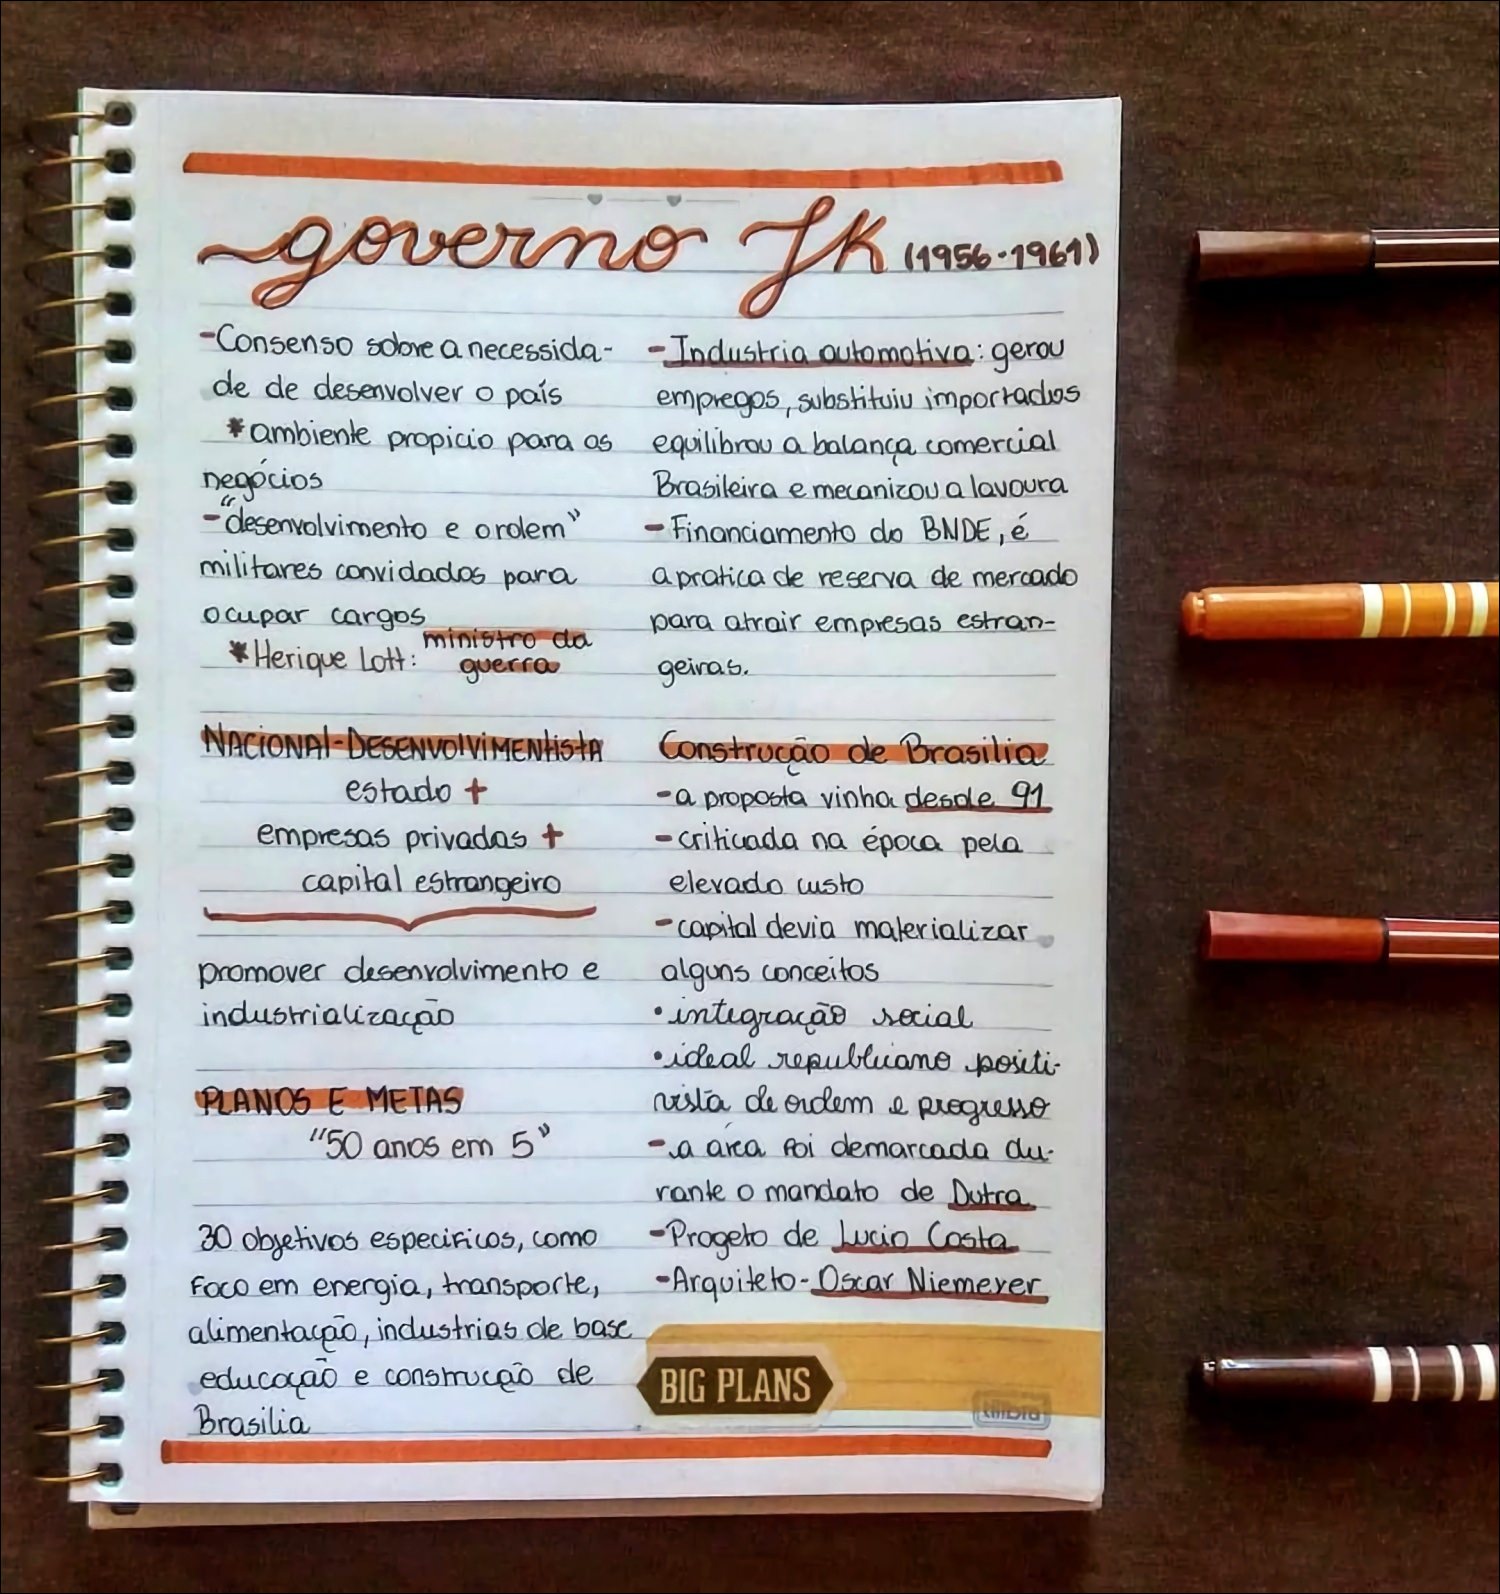 governo JK (1956-1961)
-Consenso sobre a necessida-
de de desenvolver o país
*ambiente propicio para os
negócios
-"desenvolvimento e ordem"
militares convidados para
ocupar cargos
*Herique Lott: ministro da
guerra
NACIONAL-DESENVOLVIMENTISTA
estado +
empresas privadas +
capital estrangeiro
promover desenvolvimento e
industrialização
PLANOS E METAS
"50 anos em 5"
30 objetivos especificos, como
foco em energia, transporte,
alimentação, industrias de base
educação e construção de
Brasilia
- Industria automotiva: gerou
empregos, substituiu importados
equilibrou a balança comercial
Brasileira e mecanizou a lavoura
- Financiamento do BNDE, é
a pratica de reserva de mercado
para atrair empresas estran-
geiras.
Construção de Brasilia
-a proposta vinha desde 91
-criticada na época pela
elevado custo
-capital devia materializar
alguns conceitos
•integração social
•ideal republicano positi-
vista de ordem e progresso
-a área foi demarcada du-
rante o mandato de Dutra
-Progeto de Lucio Costa
-Arquiteto-Oscar Niemeyer
BIG PLANS
tilibra